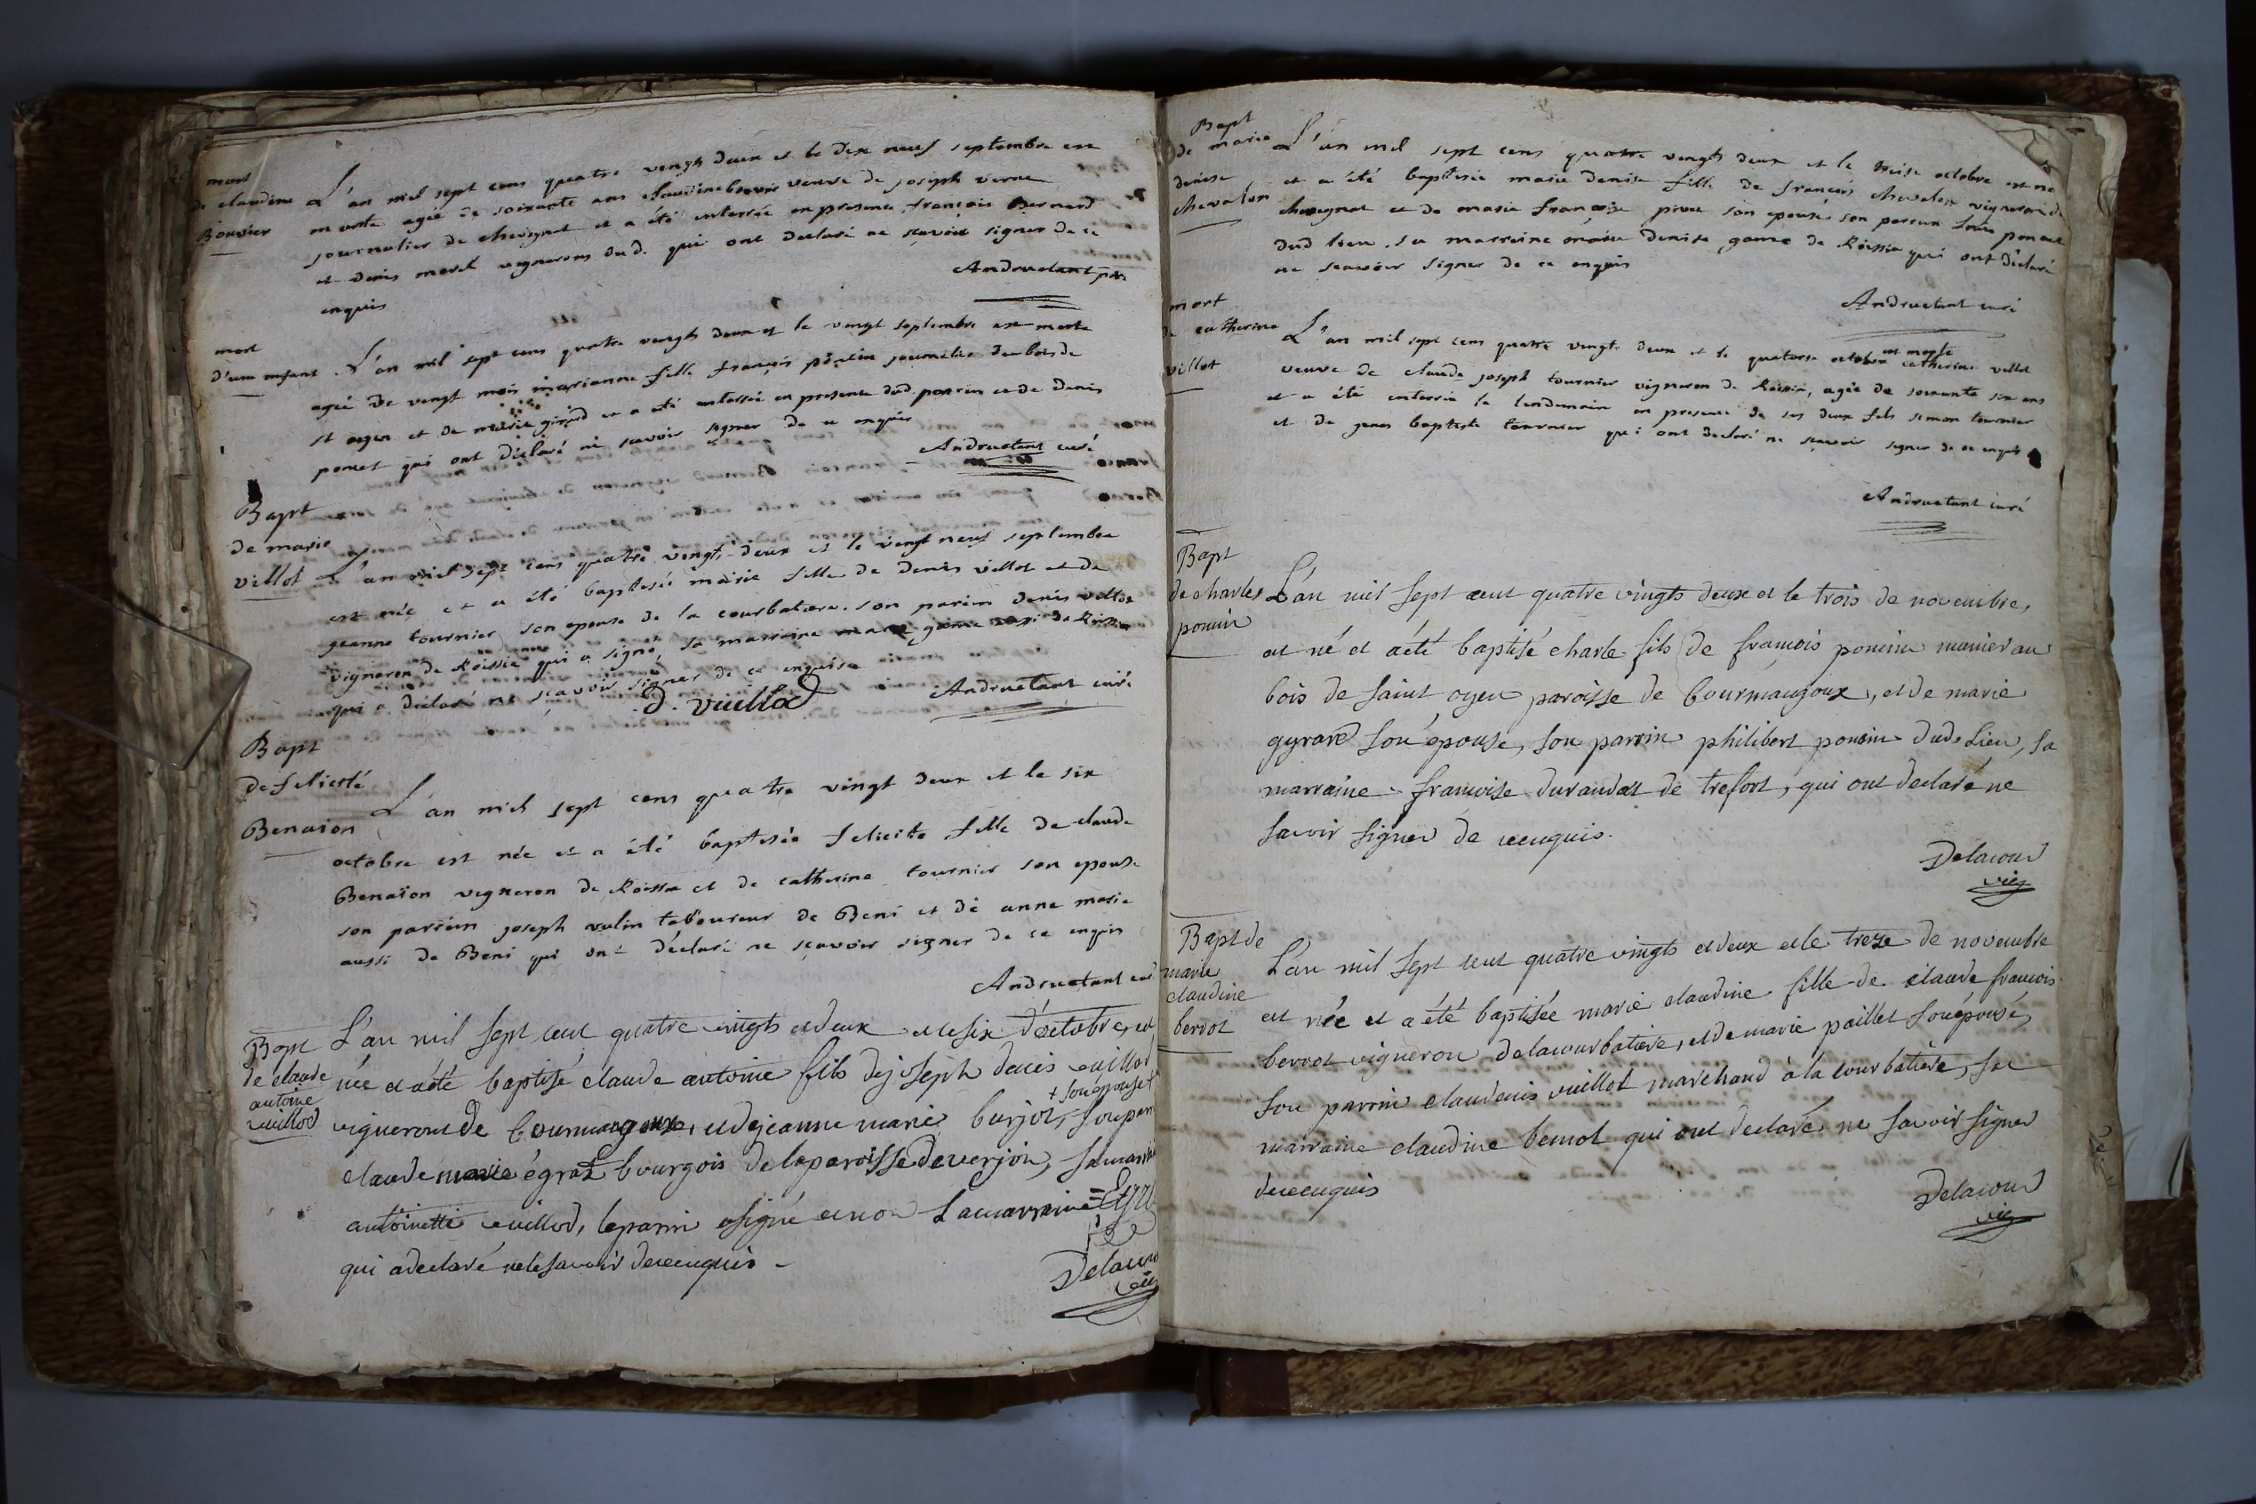 mort
de claudine
Bouvier
L'an mil sept cens quatre vingts deux et le dix neuf septembre est
morte agée de soixante ans claudine bouvier veuve de joseph verne
journalier de chevignat et a été enterrée en presence françois Bernard
et denis morel vignerons dud. qui ont declaré ne sçavoir signer de ce
enquis
Andruetant
mort
d'un enfant
L'an mil sept cens quatre vingts deux et le vingt septembre est morte
agée de vingt mois marianne fille françois poncin journalier du bois de
st oyen et de marie girard et a été enterrée en presence dud. poncin et de denis
poncet qui ont déclaré ne scavoir signer de ce enquis
Andruetant curé
Bapt
de marie
villot
L'an mil sept cens quatre vingts deux et le vingt neuf septembre
est née et a été baptisée marie fille de denis villot et de
jeanne tournier son epouse de la courbatiere. son parein denis villot
vigneron de Roissia qui a signé, sa marraine marie game aussi de Roissia
qui a déclaré ne sçavoir signer de ce enquise
d. vuillod
Andruetant curé
Bapt
de felicité
Benaion
L'an mil sept cens quatre vingt deux et le six
octobre est née et a été baptisée felicité fille de claude
Benaion vigneron de Roissia et de catherine tournier son epouse
son parrein joseph vulin laboureur de Beni et de anne marie
aussi de Beni qui ont déclaré ne sçavoir signer de ce enquis
Andruetant curé
Bapt
de claude
antoine
vuillod
L'an mil sept cent quatre vingts et deux et le six d'octobre, est
née et a été baptisé claude antoine fils de joseph denis vuillod
vigneron de bourmangoux, et de jeanne marie burjot, + son epouse + son par
claude marie égraz bourgois de la paroisse de verjon, sa marrai
antoinette vuillod, le parrin a signé et non la marraine = Egra
qui a declaré ne le savoir de ce enquis -
Delacour
vic
Bapt
de marie
denise
chevalon
L'an mil sept cens quatre vingts deux et le treise octobre est née
et a été baptisée marie denise fille de françois chevalon vigneron de
chevignat et de marie françoise pivet son epouse son parein poncet
dud lieu. sa marreine marie denise game de Roissia qui ont déclaré
ne scavoir signer de ce enquis
Andruetant curé
mort
de catherine
villot
L'an mil sept cens quatre vingts deux et le quatorse octobre est morte catherine villot
veuve de claude joseph tournier vigneron de Roissia, agée de soixante six ans
et a été enterrée le lendemain en presence de ses deux fils simon tournier
et de jean baptiste tournier qui ont declaré ne sçavoir signer de ce enquis
Andruetant curé
Bapt
de charles
poncin
L'an mil sept cent quatre vingts deux et le trois de novembre,
est né et a été baptisé charle fils de francois poncin manier au
bois de saint oyen paroisse de bourmangoux, et de marie
gyrard son épouse, son parrin philibert poncin dud. Lieu, sa
marraine francoise durandet de trefort, qui ont declaré ne
savoir signer de ce enquis.
Delacour
vic
Bapt de
marie
claudine
berrot
L'an mil sept cent quatre vingts et deux et le treze de novembre
est née et a été baptisée marie claudine fille de claude francois
berrot vigneron de la courbatière, et de marie paillet son épouse,
son parrin claudenis vuillot marchand à la courbatière, sa
marraine claudine bernot qui ont declaré ne savoir signer
de ce enquis
Delacour
vic